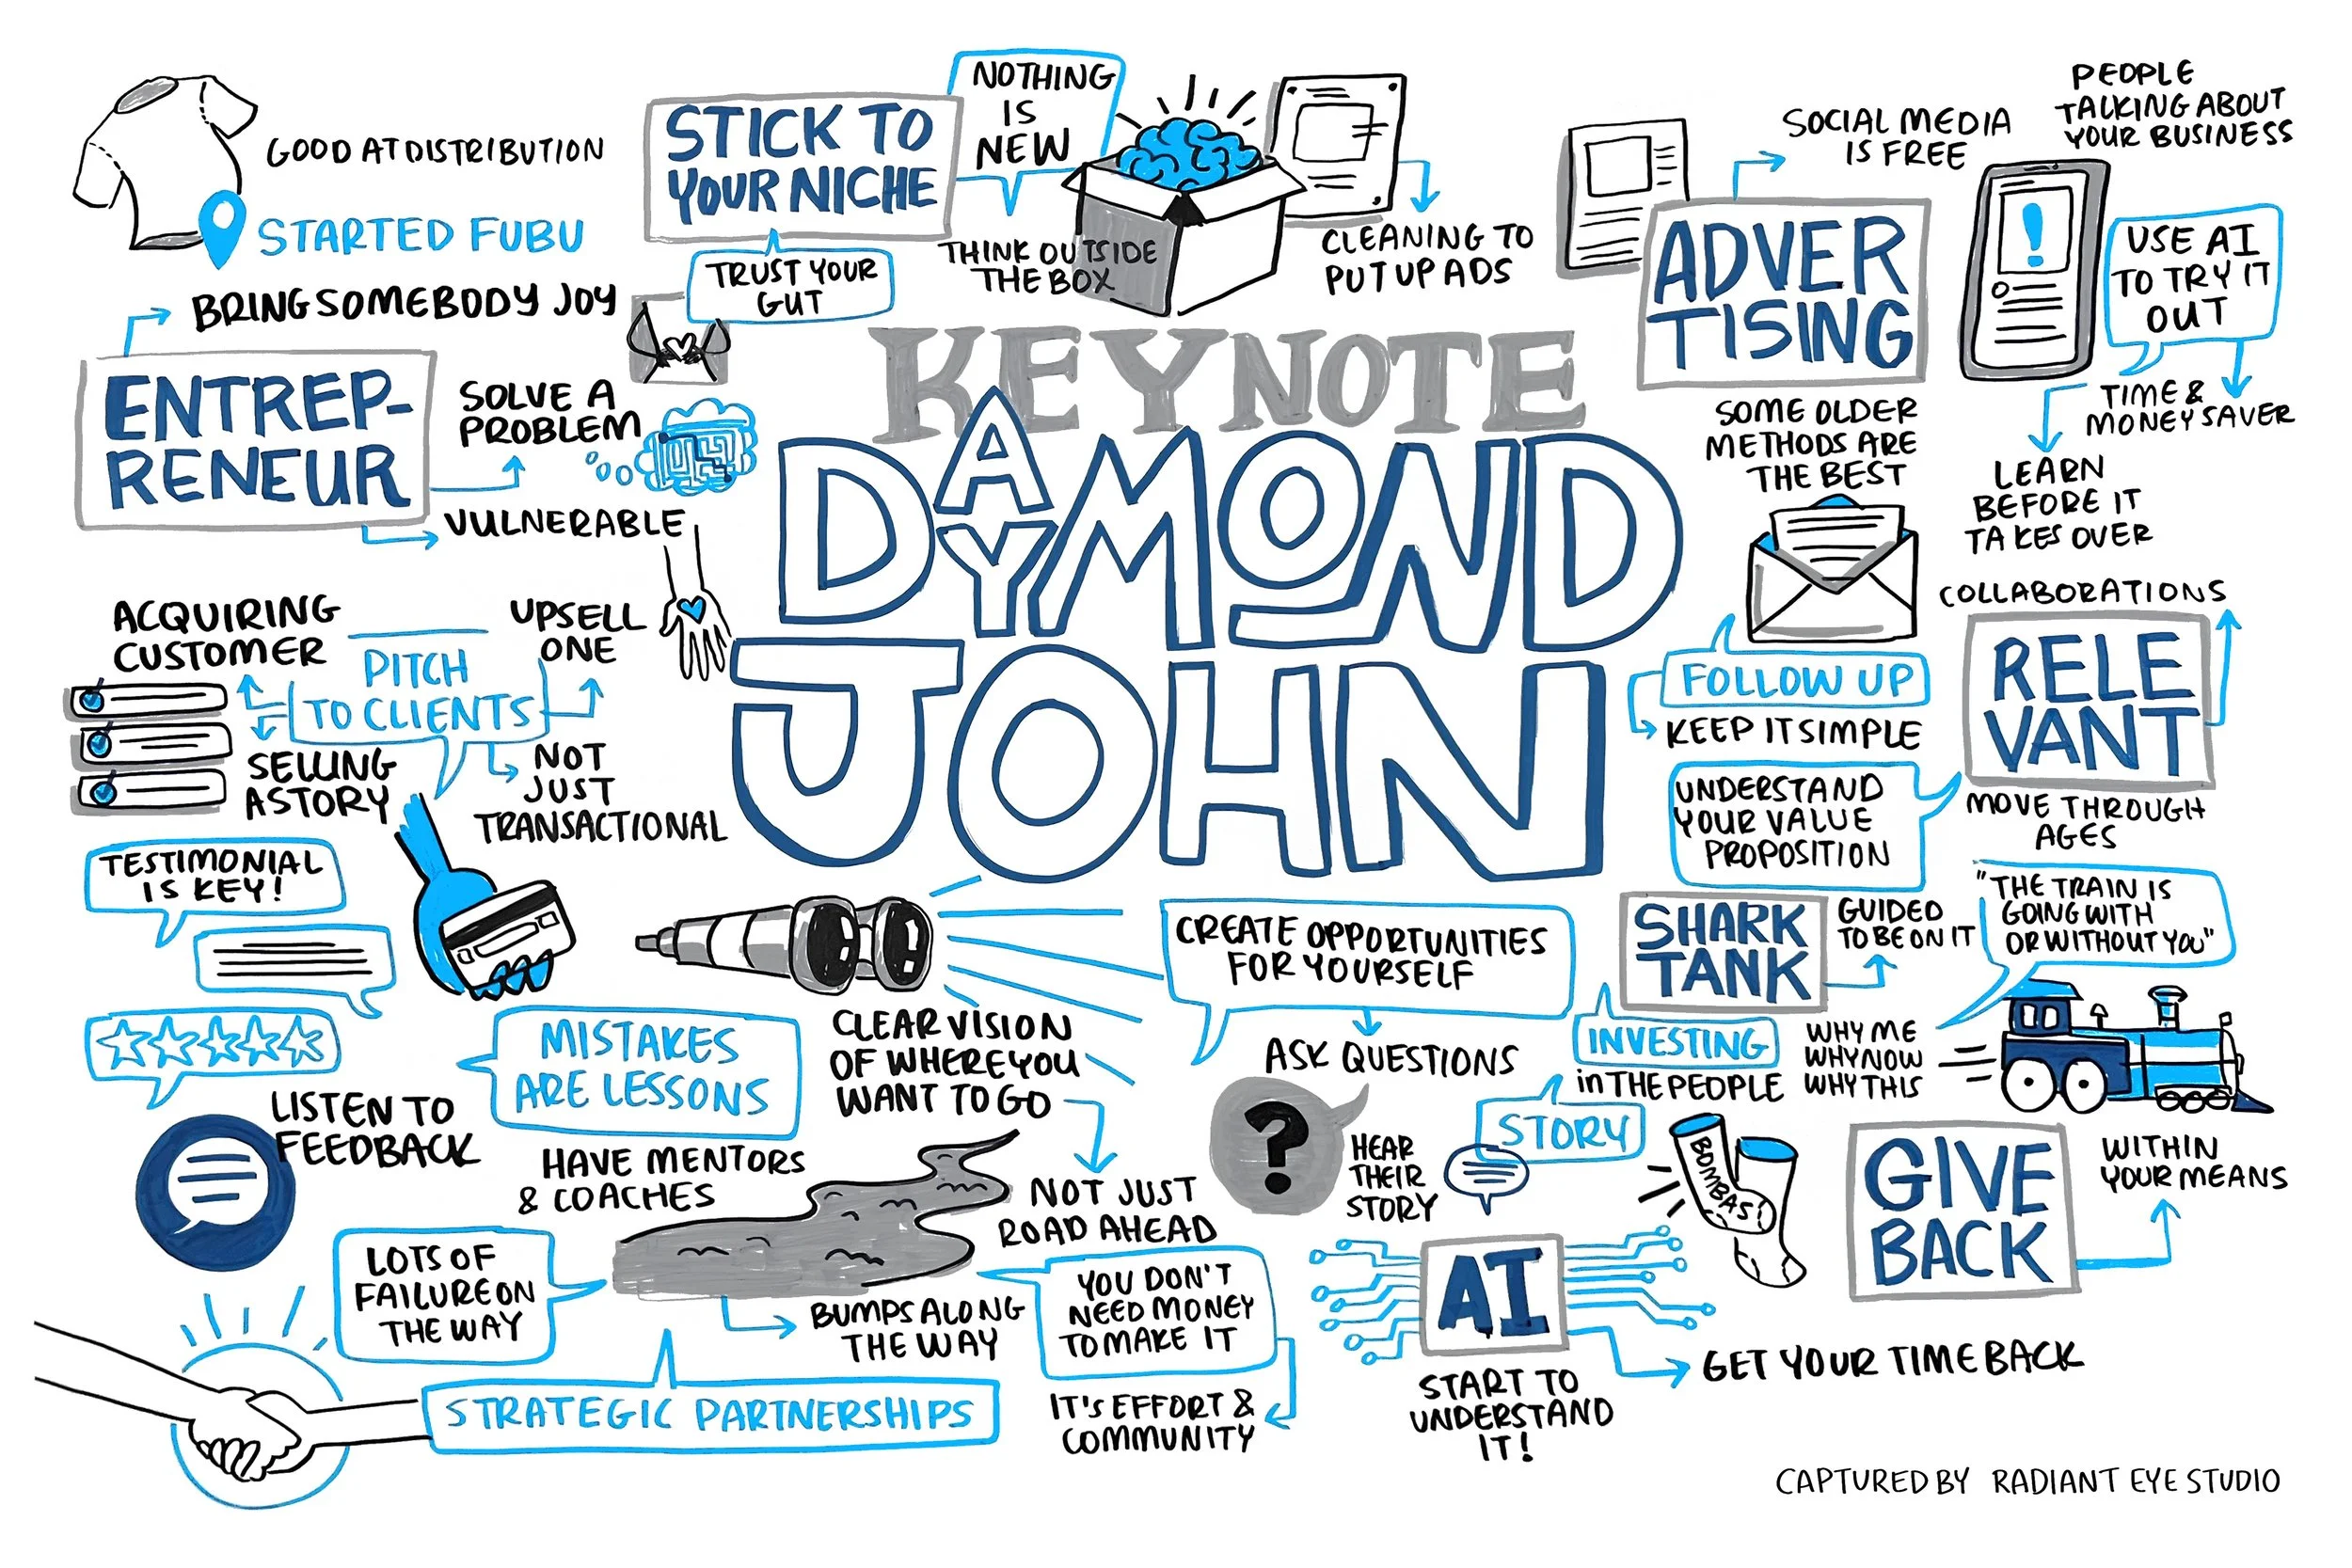 GOOD AT DISTRIBUTION
STARTED FUBU
BRING SOMEBODY JOY
ENTREP-
RENEUR
SOLVE A
PROBLEM
VULNERABLE
STICK TO
YOUR NICHE
TRUST YOUR
GUT
NOTHING
IS
NEW
THINK OUTSIDE
THE BOX
CLEANING TO
PUT UP ADS
KEYNOTE
DAYMOND
JOHN
SOCIAL MEDIA
IS FREE
PEOPLE
TALKING ABOUT
YOUR BUSINESS
ADVER
TISING
USE AI
TO TRY IT
OUT
TIME &
MONEY SAVER
LEARN
BEFORE IT
TAKES OVER
SOME OLDER
METHODS ARE
THE BEST
FOLLOW UP
KEEP IT SIMPLE
COLLABORATIONS
RELE
VANT
UNDERSTAND
YOUR VALUE
PROPOSITION
MOVE THROUGH
AGES
ACQUIRING
CUSTOMER
PITCH
TO CLIENTS
UPSELL
ONE
SELLING
A STORY
NOT
JUST
TRANSACTIONAL
TESTIMONIAL
IS KEY!
LISTEN TO
FEEDBACK
MISTAKES
ARE LESSONS
HAVE MENTORS
& COACHES
CLEAR VISION
OF WHERE YOU
WANT TO GO
NOT JUST
ROAD AHEAD
LOTS OF
FAILURE ON
THE WAY
BUMPS ALONG
THE WAY
YOU DON'T
NEED MONEY
TO MAKE IT
IT'S EFFORT &
COMMUNITY
STRATEGIC PARTNERSHIPS
CREATE OPPORTUNITIES
FOR YOURSELF
ASK QUESTIONS
?
HEAR
THEIR
STORY
SHARK
TANK
GUIDED
TO BE ON IT
"THE TRAIN IS
GOING WITH
OR WITHOUT YOU"
INVESTING
in THE PEOPLE
STORY
WHY ME
WHY NOW
WHY THIS
BOMBAS
GIVE
BACK
WITHIN
YOUR MEANS
AI
START TO
UNDERSTAND
IT!
GET YOUR TIME BACK
CAPTURED BY RADIANT EYE STUDIO